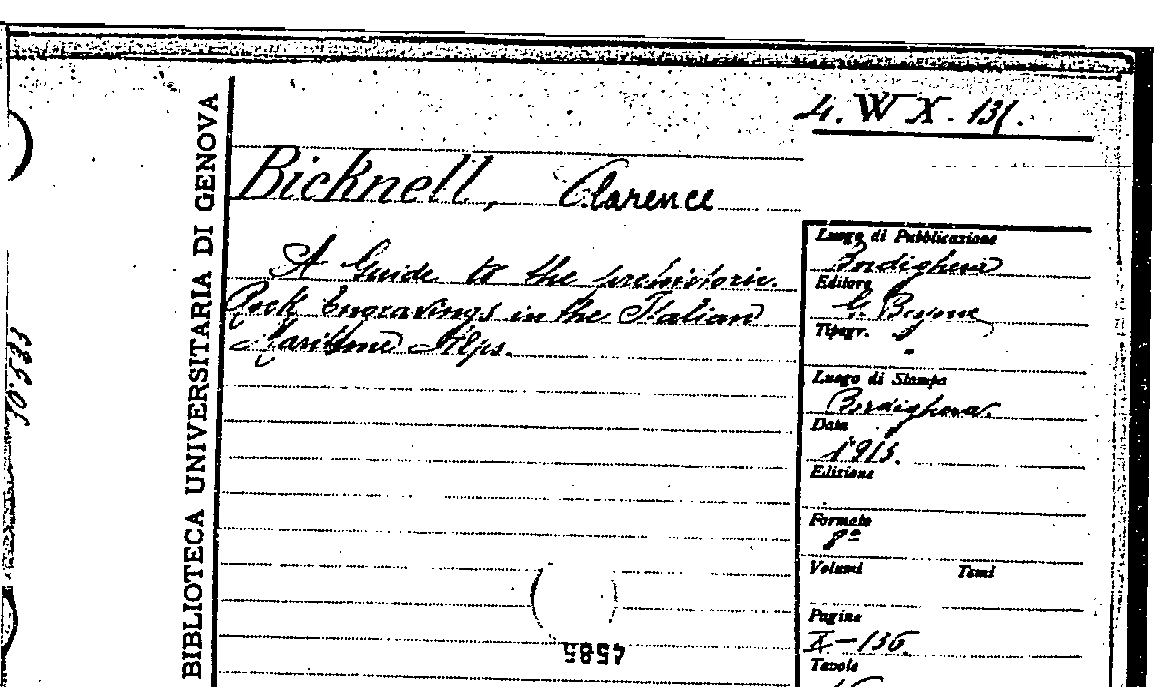 4. W X. 131.
BIBLIOTECA UNIVERSITARIA DI GENOVA
Bicknell, Clarence
A Guide to the prehistoric
Rock Engravings in the Italian
Maritime Alps.
Luogo di Pubblicazione
Bordighera
Editore
G.
Tipogr.
Luogo di Stampa
Bordighera
Data
1913.
Edizione
Formato
8º
Volumi Tomi
Pagine
X-136
Tavole
4585